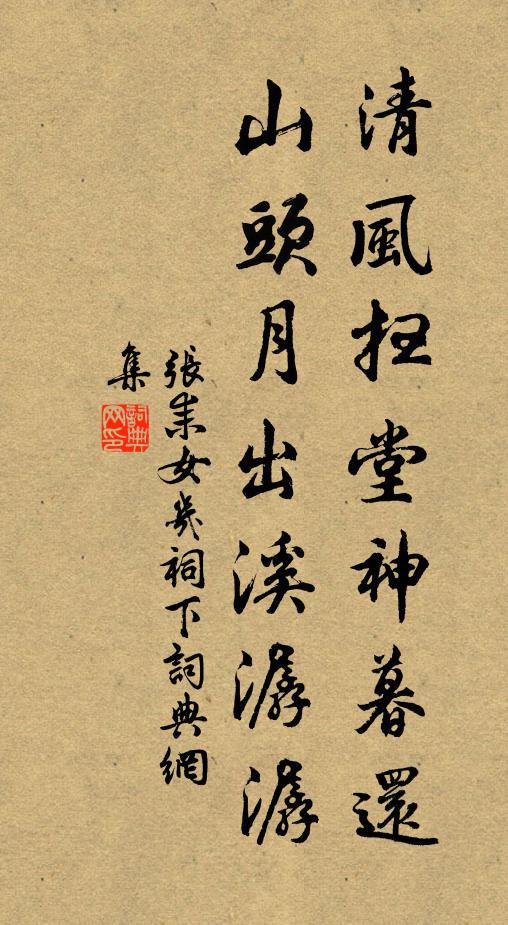 清風扫堂神暮還
山頭月出溪潺潺
張耒女几祠下詞典網
集
詞典网印